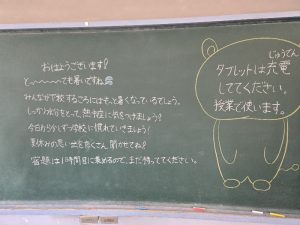 おはようございます！
と〜〜〜〜ても暑いですね
みんなが下校するころにはもっと暑くなっているでしょう。
しっかり水分をとって、熱中症に気をつけましょう！
今日から少しずつ学校に慣れていきましょう！
夏休みの思い出をたくさん聞かせてね！
宿題は1時間目に集めるので、まだ待っててください。
じゅうでん
タブレットは充電
しててください。
授業で使います。